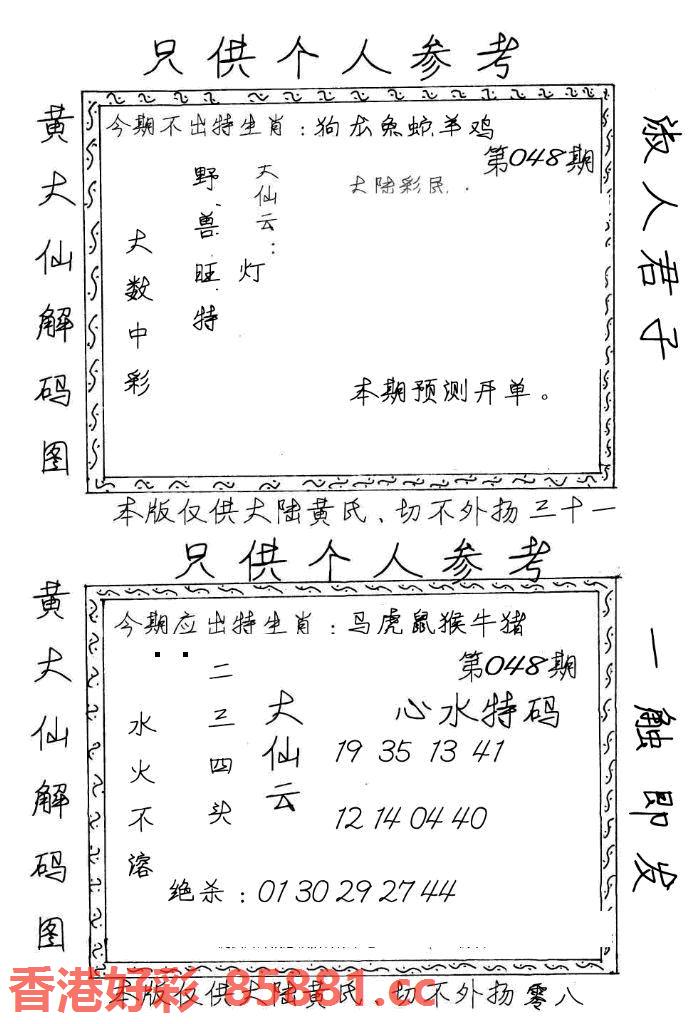 只供个人参考
黄大仙解码图
今期不出特生肖：狗龙兔蛇羊鸡
第048期
大仙云：
灯
大陆彩民.
野兽旺特
大数中彩
本期预测开单。
淑人君子
本版仅供大陆黄氏、切不外扬三十一
只供个人参考
黄大仙解码图
今期应出特生肖：马虎鼠猴牛猪
第048期
心水特码
大仙云
二三四头
水火不溶
19 35 13 41
12 14 04 40
绝杀：01 30 29 27 44
一触即发
本版仅供大陆黄氏、切不外扬零八
香港好彩 85881.cc